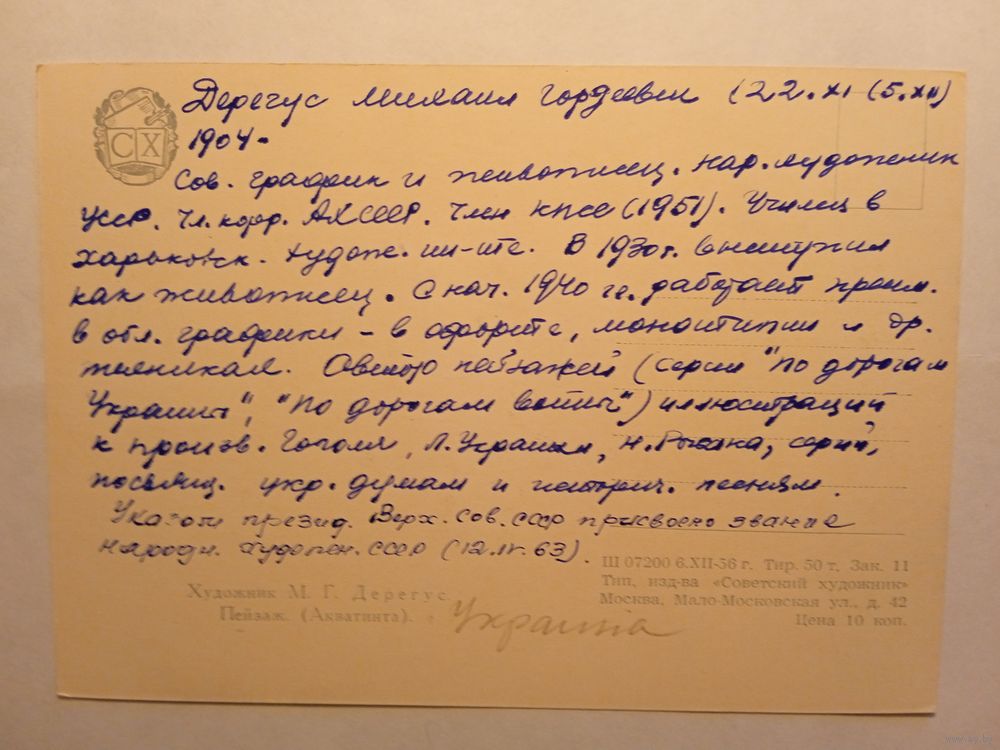 Дерегус Михаил Гордеевич (22.XI (5.XII)
1904 -
СХ
Сов. график и живописец. Нар. художник
УССР. Чл. корр. АХ СССР. Член КПСС (1951). Училс в
Харьковск. худож. ин-те. В 1930 г. выступил
как живописец. С нач. 1940 гг. работает преим.
в обл. графики - в офорте, монотипии и др.
техниках. Автор пейзажей (серии "По дорогам
Украины", "По дорогам войны") иллюстраций
к произв. Гоголя, Л. Украинки, Н. Рыбака, серий,
посвящ. укр. думам и историч. песням.
Указом презид. Верх. Сов. СССР присвоено звание
народн. художн. СССР (12.IV.63).
Ш 07200 6.XII-56 г. Тир. 50 т. Зак. 11
Тип. изд-ва «Советский художник»
Москва, Мало-Московская ул., д. 42
Цена 10 коп.
Художник М. Г. Дерегус.
Пейзаж. (Акватинта).
Украина